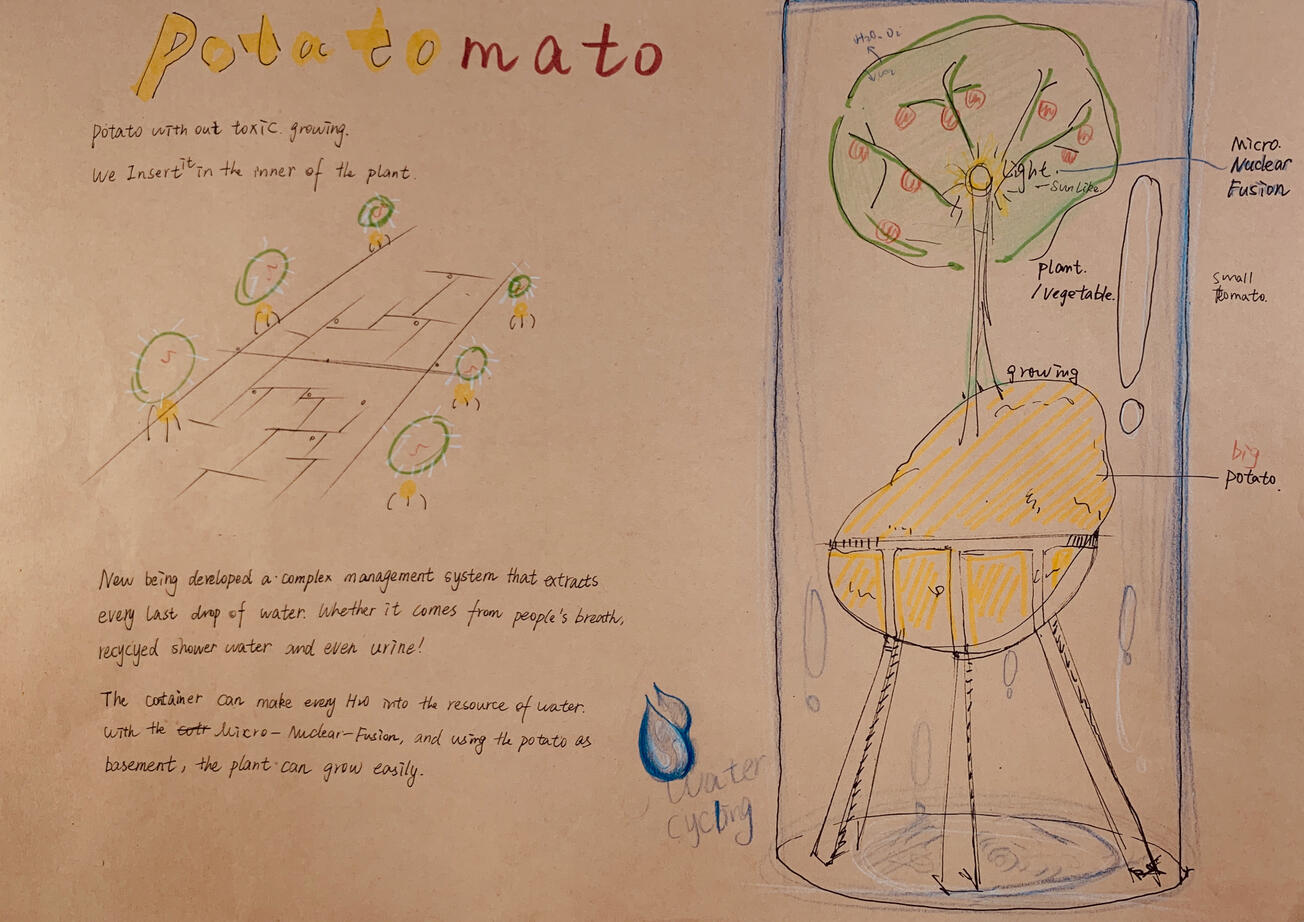 Potatomato
potato with out toxic. growing.
We Insert it in the inner of the plant.
New being developed a complex management system that extracts
every last drop of water. Whether it comes from people's breath,
recycyed shower water and even urine!
The container can make every H2O into the resource of water.
With the Micro-Nuclear-Fusion, and using the potato as
basement, the plant can grow easily.
Water
cycling
H2O. O2
CO2
Light.
- Sun Like.
Micro.
Nuclear
Fusion
plant.
/vegetable.
small
tomato.
growing
big
potato.